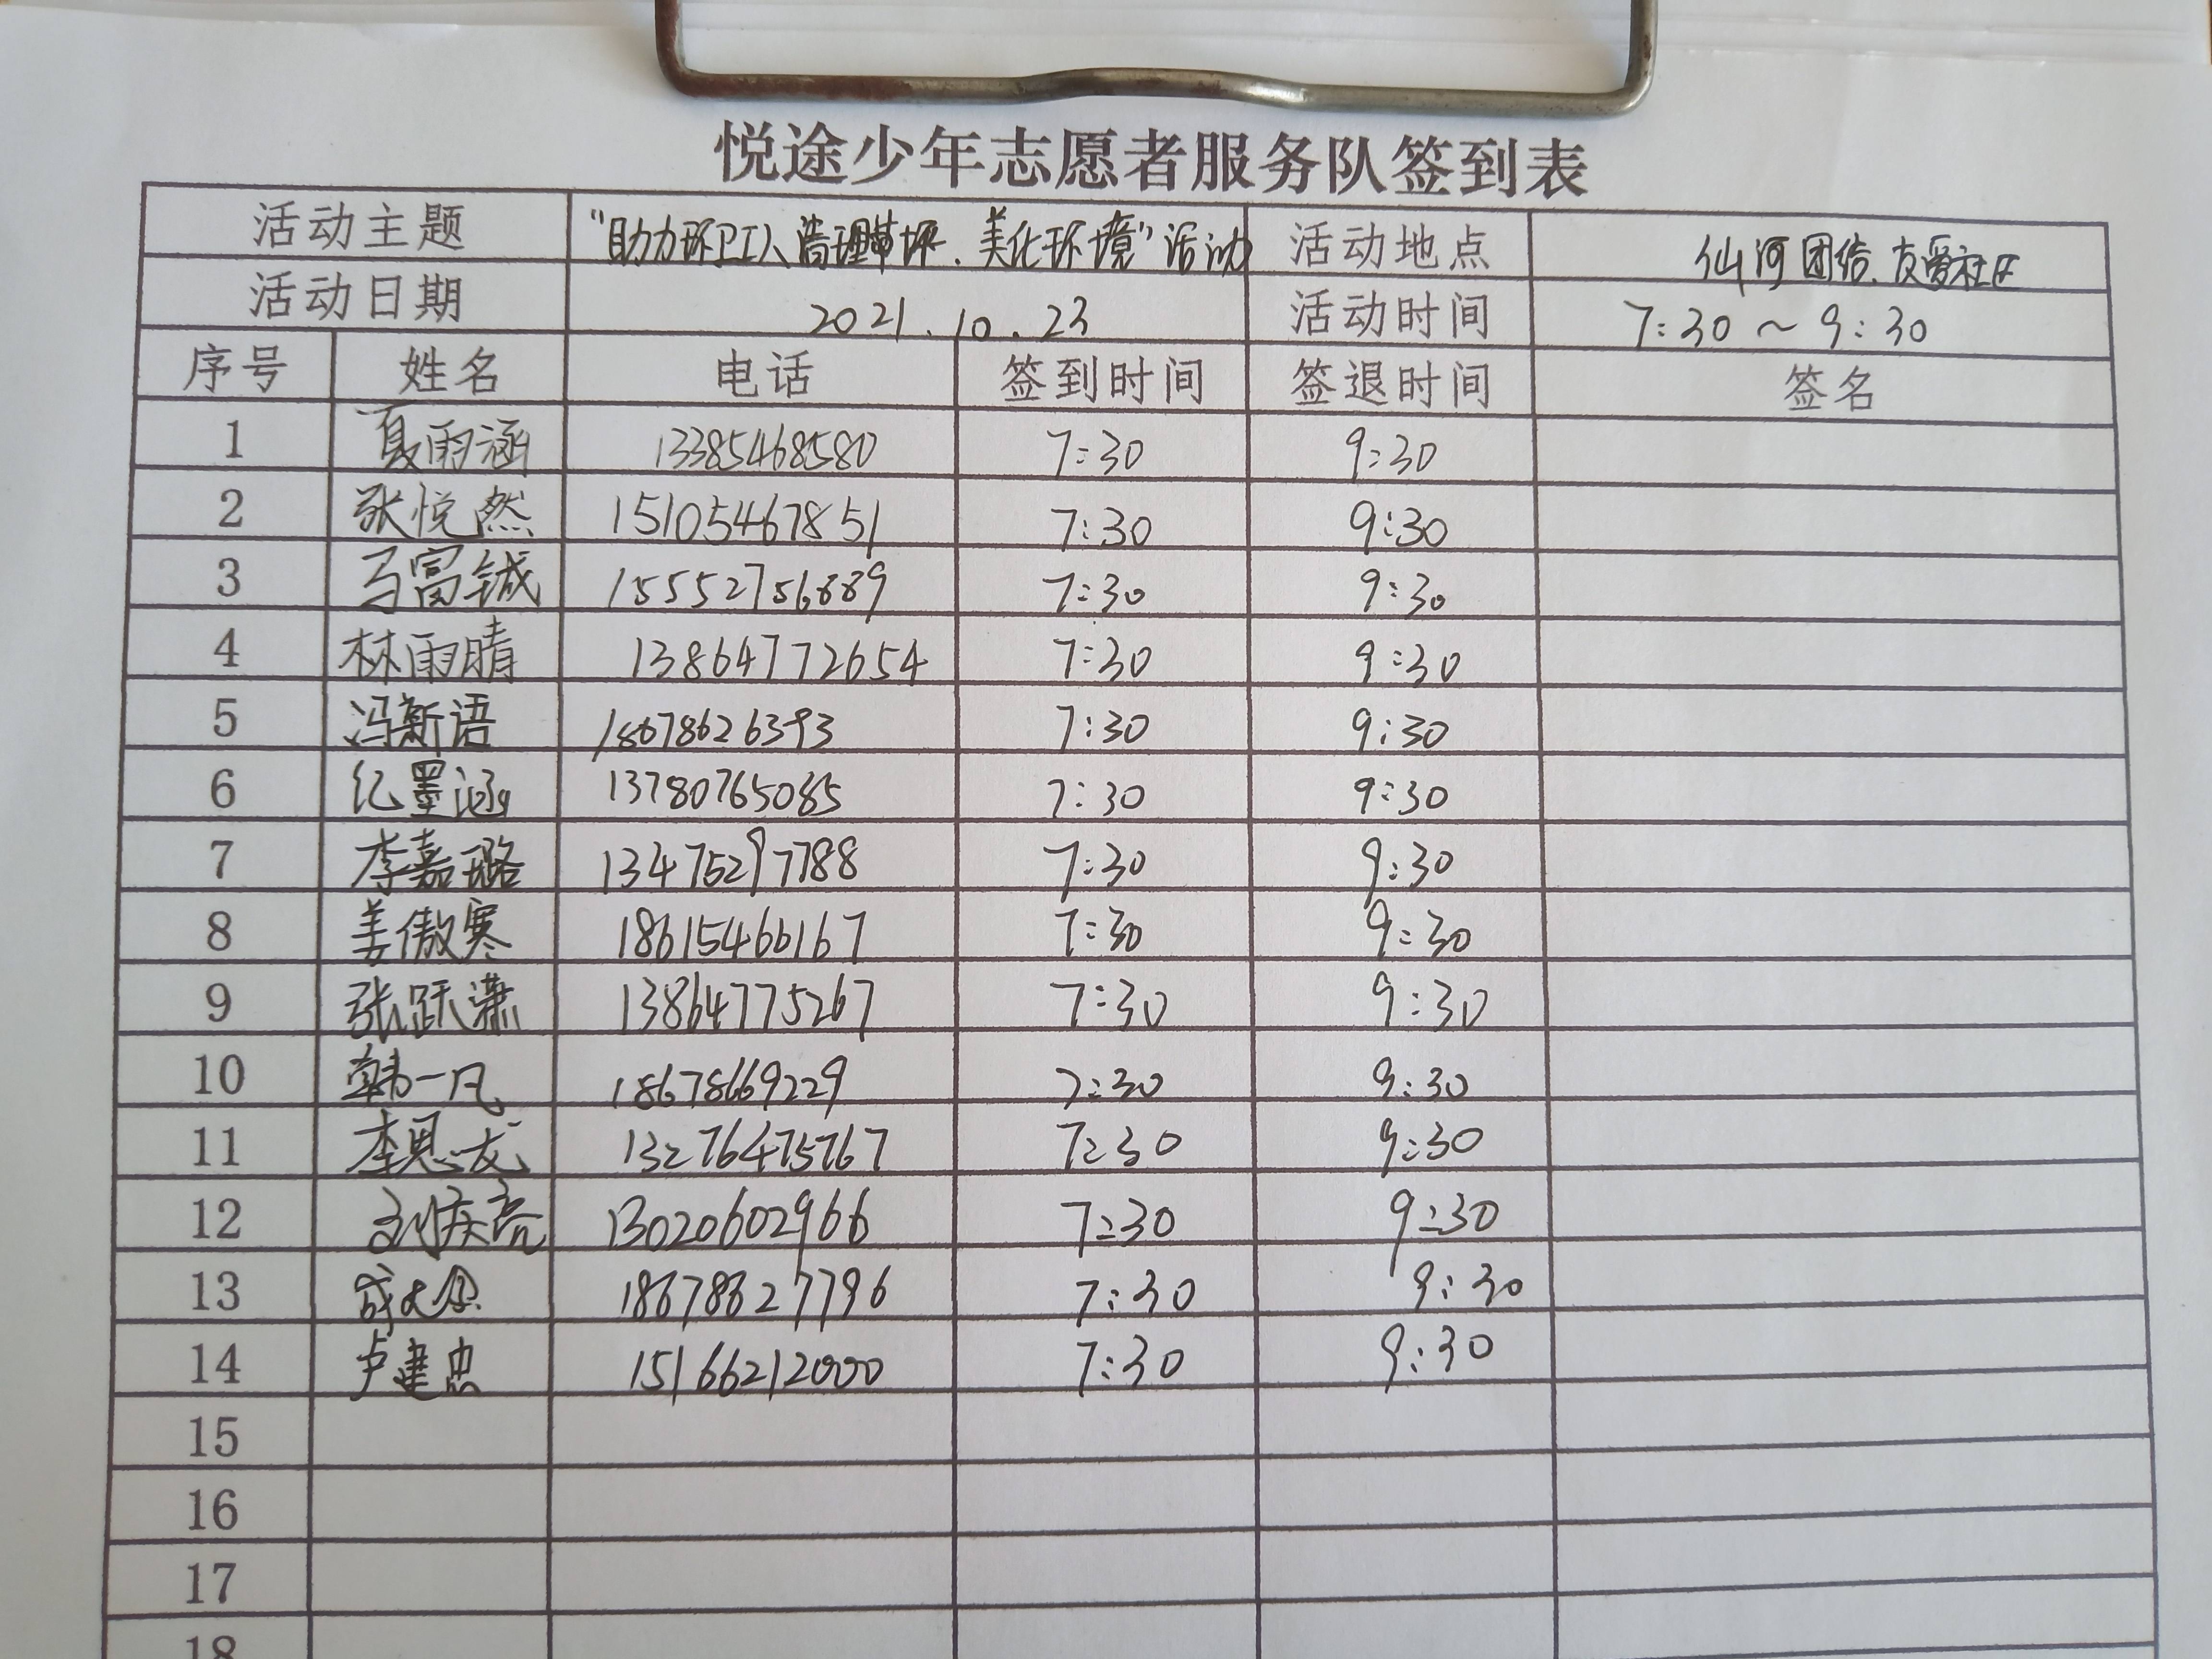 悦途少年志愿者服务队签到表
活动主题 "助力环卫工人清理草坪、美化环境"活动 活动地点 仙河团结、友爱社区
活动日期 2021.10.23 活动时间 7:30～9:30
序号 姓名 电话 签到时间 签退时间 签名
1 夏雨涵 13385468580 7:30 9:30
2 张悦然 15105467851 7:30 9:30
3 马富铖 15552756889 7:30 9:30
4 林雨晴 13864772654 7:30 9:30
5 冯新语 18678626393 7:30 9:30
6 纪墨涵 13780765085 7:30 9:30
7 李嘉璐 13475297788 7:30 9:30
8 姜傲寒 18615466167 7:30 9:30
9 张跃潇 13864775267 7:30 9:30
10 韩一凡 18678669229 7:30 9:30
11 李思龙 13276475767 7:30 9:30
12 13020602966 7:30 9:30
13 18678627796 7:30 9:30
14 卢建忠 15166212000 7:30 9:30
15
16
17
18